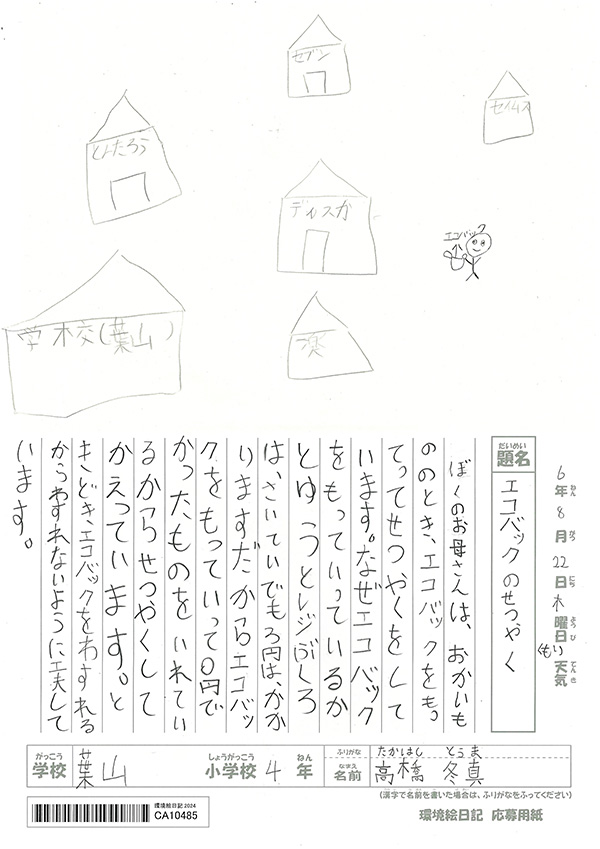 セブン
セイムス
とんたろう
ディスカ
エコバック
学校(葉山)
楽
6年8月22日木曜日くもり天気
ねん
がつ
にち
よう び
てん き
だいめい
題名
エコバックのせつやく
ぼくのお母さんは、おかいも
ののとき、エコバックをもっ
てってせつやくをして
います。なぜエコバック
をもっていっているか
とゆうとレジぶくろ
は、さいていでも3円は、かか
りますだからエコバッ
クをもっていって0円で
かったものをいれてい
るからせつやくして
かえっています。と
きどき、エコバックをわすれる
からわすれないように工夫して
います。
がっこう
学校
葉山
しょうがっこう
小学校
4
ねん
年
ふりがな
たかはし とうま
なまえ
名前
高橋 冬真
(漢字で名前を書いた場合は、ふりがなをふってください)
環境絵日記2024
CA10485
環境絵日記 応募用紙